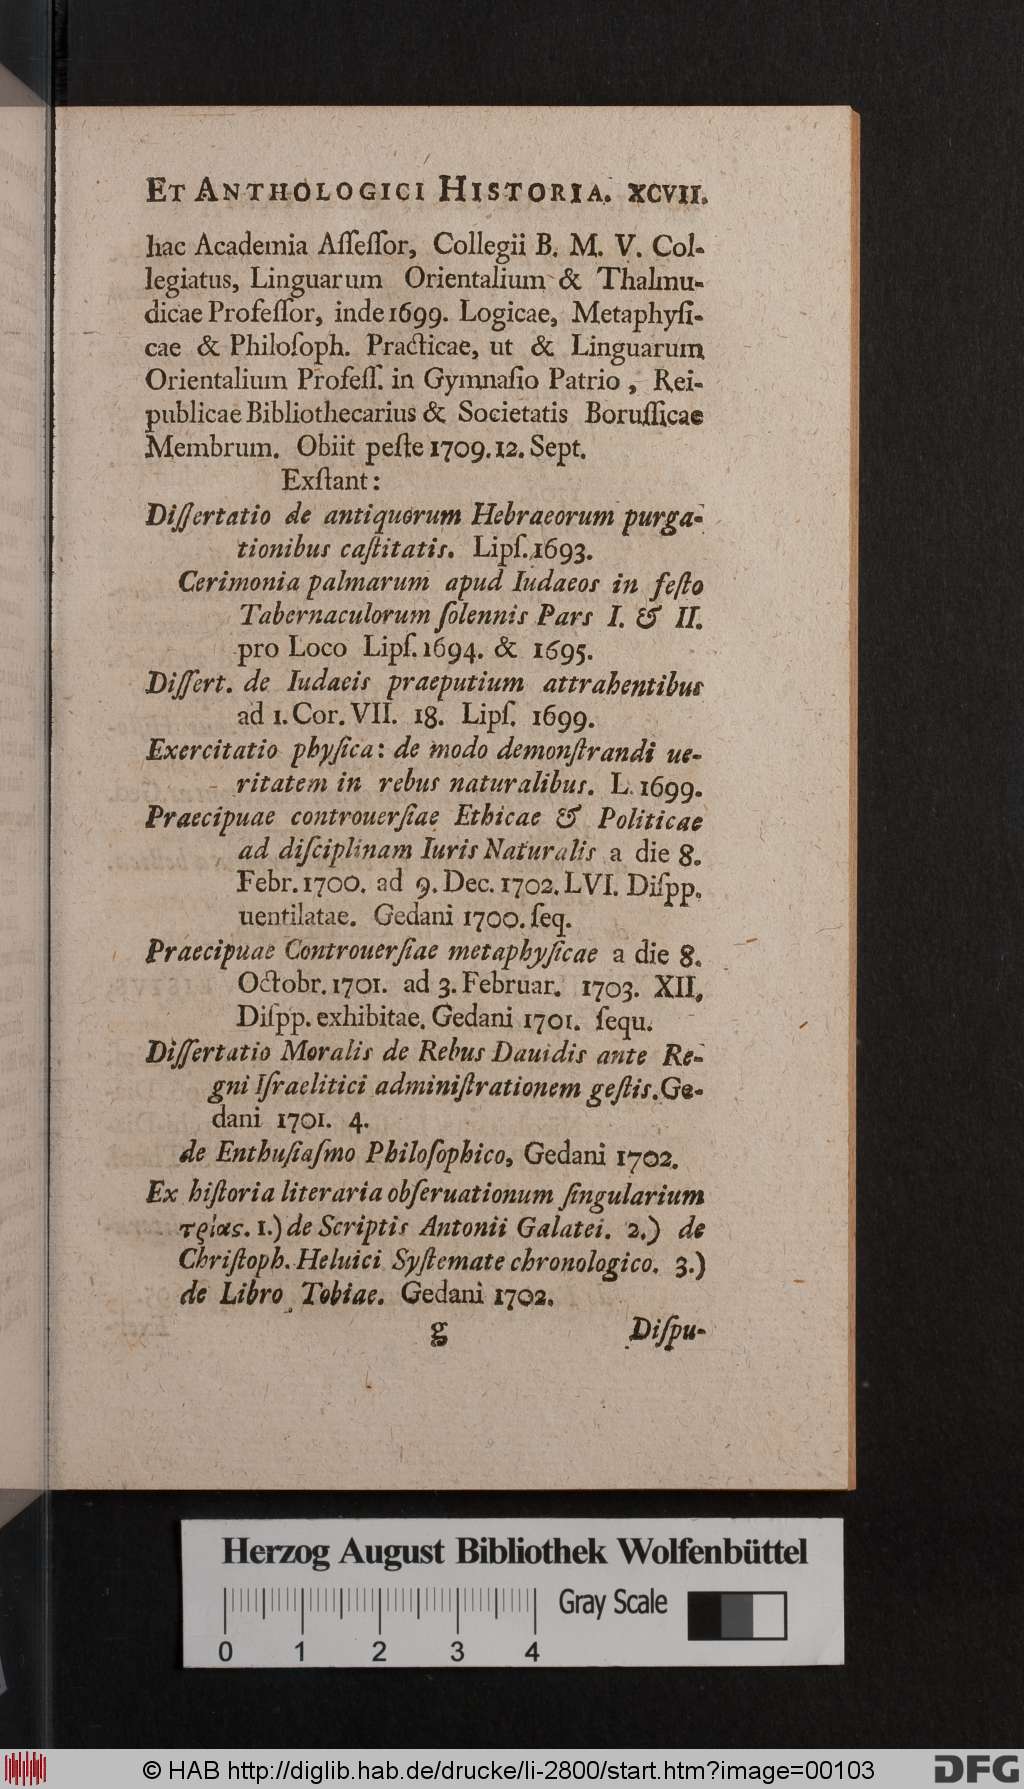 ET ANTHOLOGICI HISTORIA. XCVII.
hac Academia Aſſeſſor, Collegii B. M. V. Col-
legiatus, Linguarum Orientalium & Thalmu-
dicae Profeſſor, inde 1699. Logicae, Metaphyſi-
cae & Philoſoph. Practicae, ut & Linguarum
Orientalium Profeſſ. in Gymnaſio Patrio, Rei-
publicae Bibliothecarius & Societatis Boruſſicae
Membrum. Obiit peſte 1709. 12. Sept.
Exſtant:
Diſſertatio de antiquorum Hebraeorum purga-
tionibus caſtitatis. Lipſ. 1693.
Cerimonia palmarum apud Iudaeos in feſto
Tabernaculorum ſolennis Pars I. & II.
pro Loco Lipſ. 1694. & 1695.
Diſſert. de Iudaeis praeputium attrahentibus
ad 1. Cor. VII. 18. Lipſ. 1699.
Exercitatio phyſica: de modo demonſtrandi ue-
ritatem in rebus naturalibus. L. 1699.
Praecipuae controuerſiae Ethicae & Politicae
ad diſciplinam Iuris Naturalis a die 8.
Febr. 1700. ad 9. Dec. 1702. LVI. Diſpp.
uentilatae. Gedani 1700. ſeq.
Praecipuae Controuerſiae metaphyſicae a die 8.
Octobr. 1701. ad 3. Februar. 1703. XII.
Diſpp. exhibitae. Gedani 1701. ſequ.
Diſſertatio Moralis de Rebus Dauidis ante Re-
gni Iſraelitici adminiſtrationem geſtis. Ge-
dani 1701. 4.
de Enthuſiaſmo Philoſophico, Gedani 1702.
Ex hiſtoria literaria obſeruationum ſingularium
τρίας. 1.) de Scriptis Antonii Galatei. 2.) de
Chriſtoph. Heluici Syſtemate chronologico. 3.)
de Libro Tobiae. Gedani 1702.
g Diſpu-
Herzog August Bibliothek Wolfenbüttel
Gray Scale
0 1 2 3 4
© HAB http://diglib.hab.de/drucke/li-2800/start.htm?image=00103
DFG